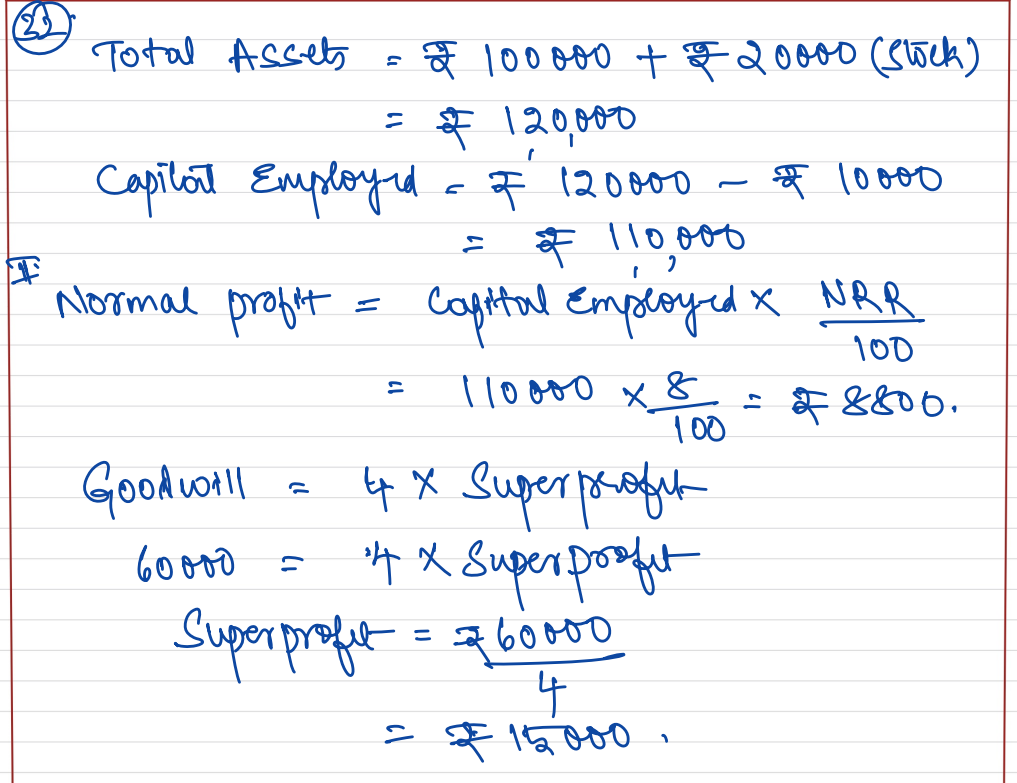 21
Total Assets = ₹ 100000 + ₹ 20000 (Stock)
= ₹ 120,000
Capital Employed = ₹ 120000 - ₹ 10000
= ₹ 110,000
II
Normal profit = Capital Employed × NRR/100
= 110000 × 8/100 = ₹ 8800.
Goodwill = 4 × Superprofit
60000 = 4 × Superprofit
Superprofit = ₹60000/4
= ₹ 15000.